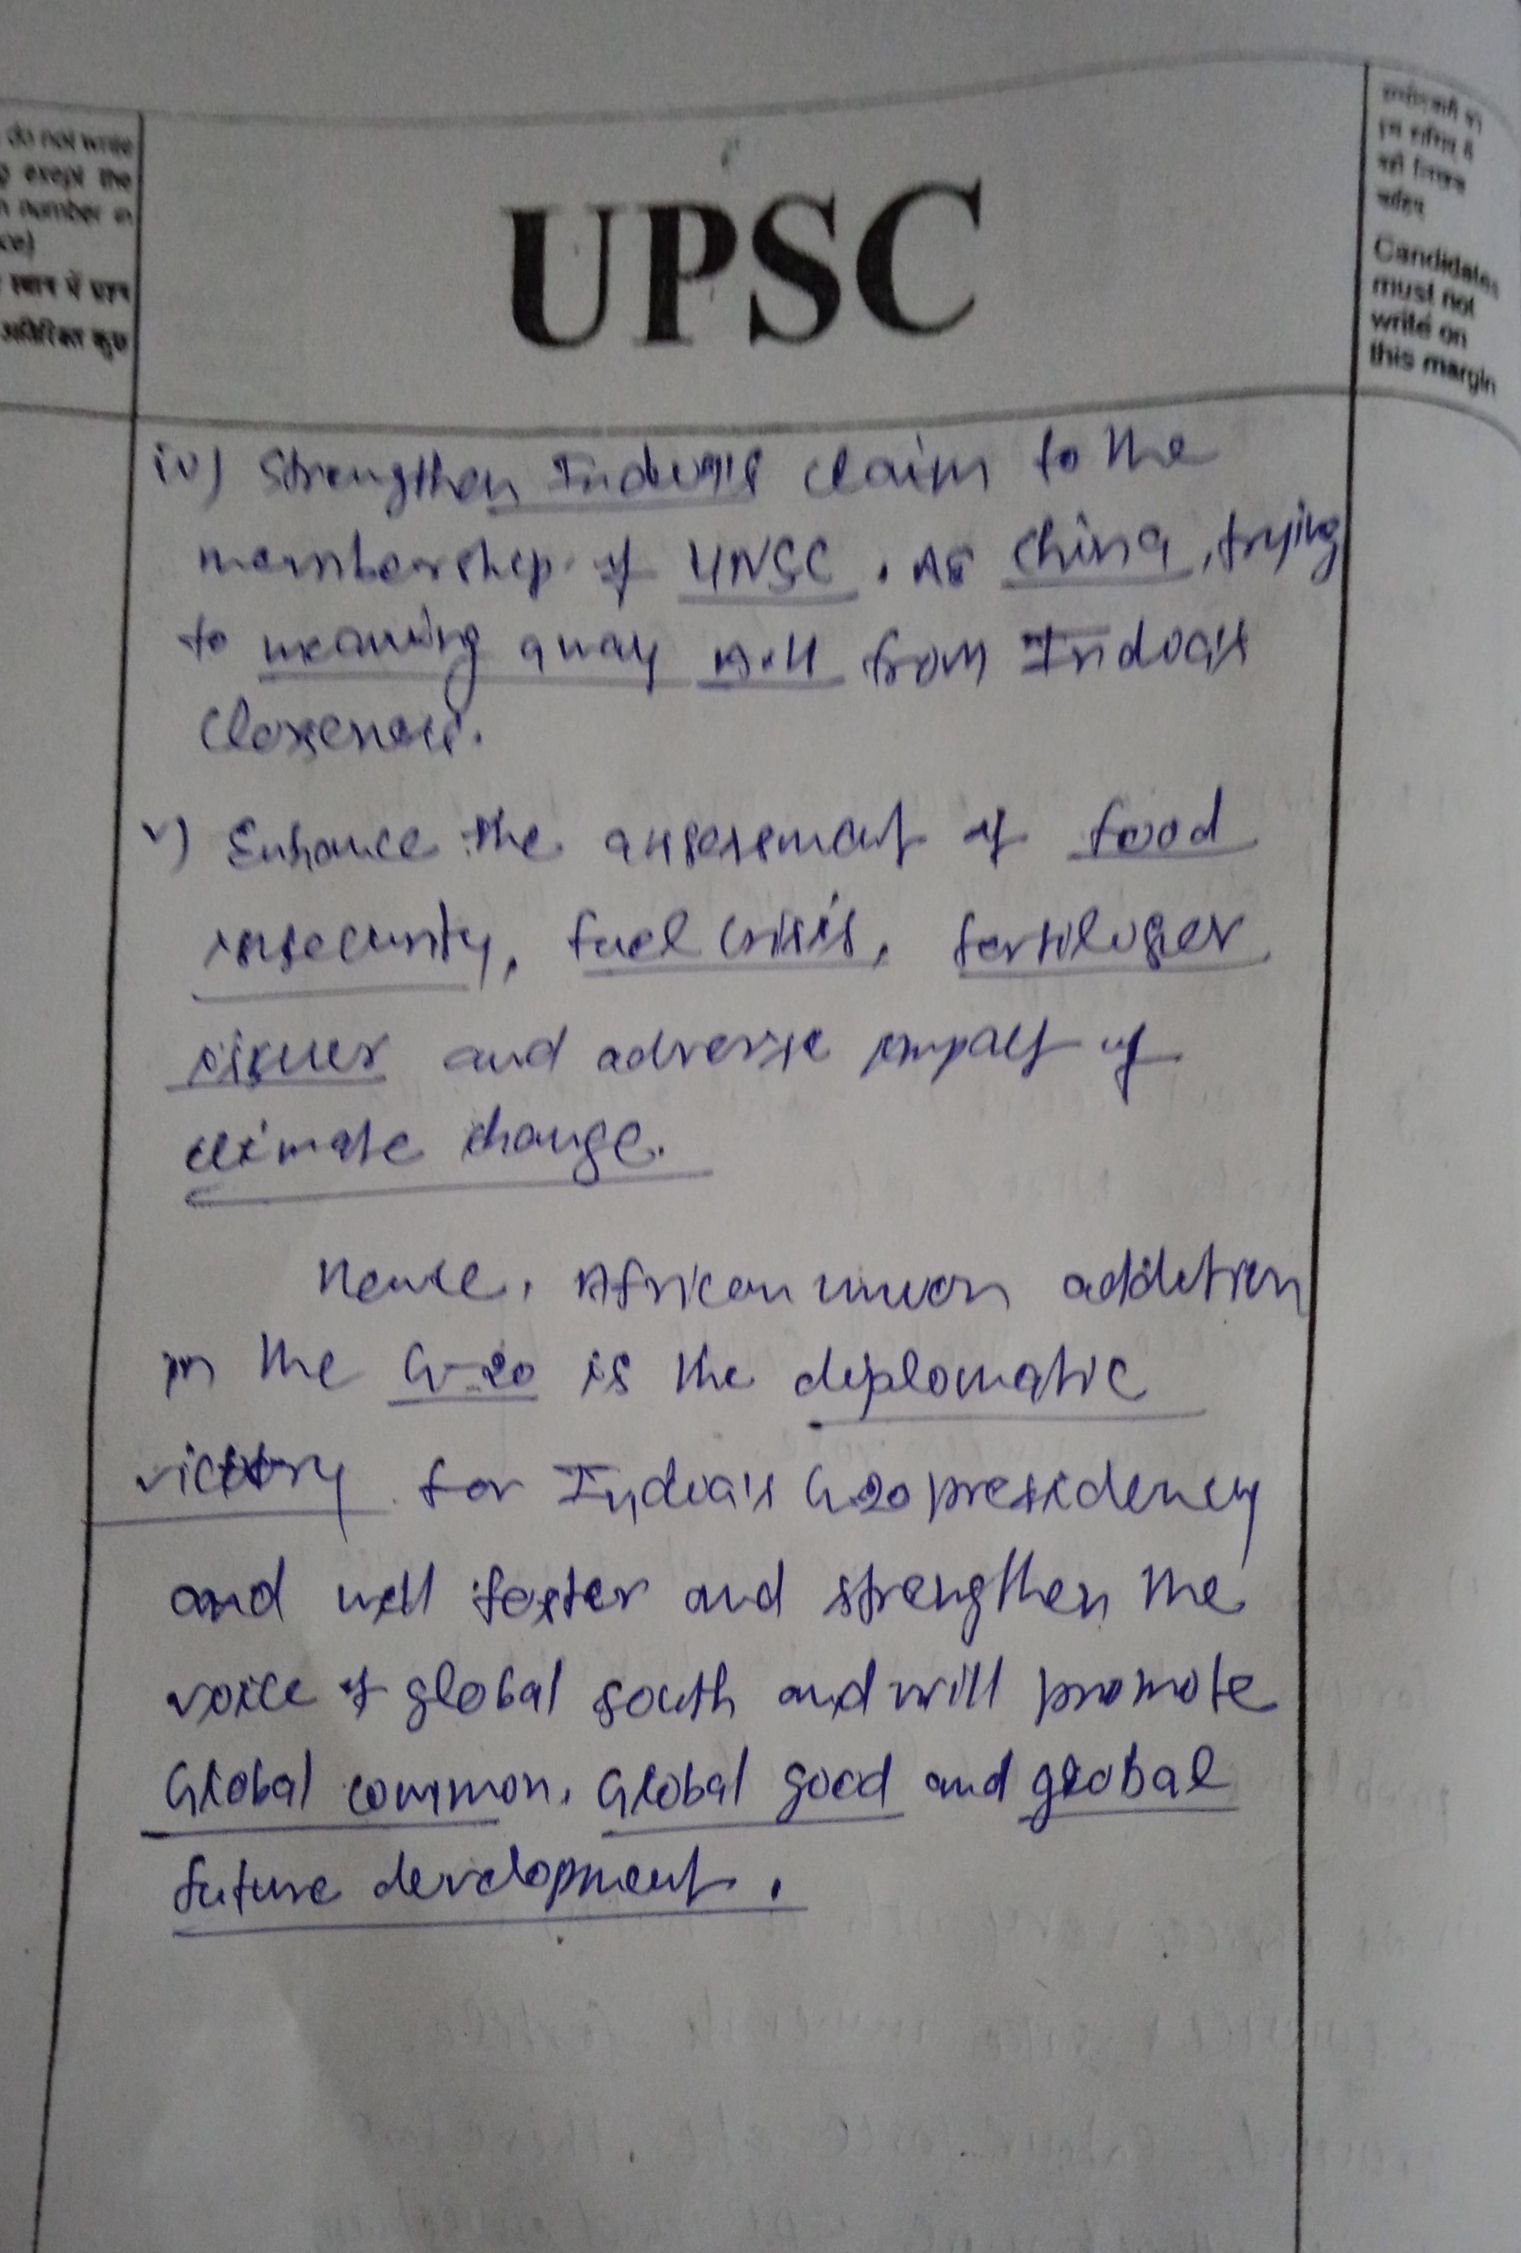 do not write
exept the
number in
ce)
स्थान में प्रश्न
अतिरिक्त कुछ
UPSC
उम्मीदवारों को
इस हाशिए में
नहीं लिखना
चाहिए
Candidates
must not
write on
this margin
iv) Strengthen India's claim to the
membership of UNSC. As China, trying
to away A.U from India's
closeness.
v) Enhance the assessment of food
insecurity, fuel crisis, fertiliser
issues and adverse impact of
climate change.
Hence, African union addition
in the G-20 is the diplomatic
victory for India's G20 presidency
and will foster and strengthen the
voice of global south and will promote
Global common, Global good and global
future development.